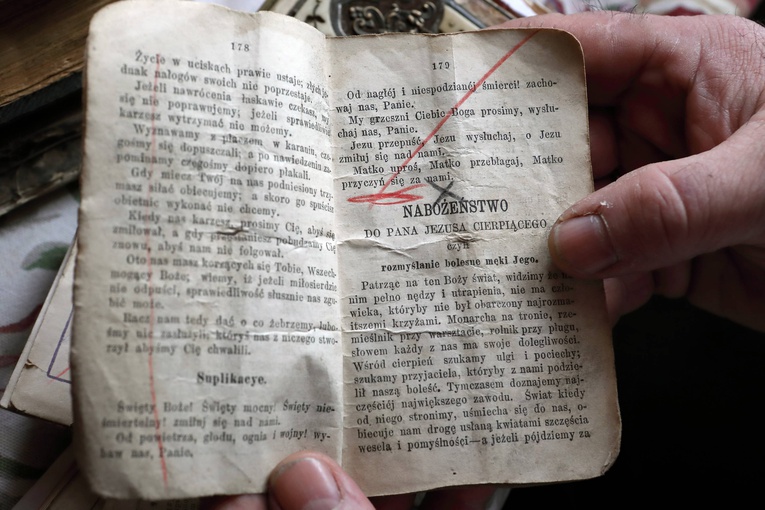 178
Życie w uciskach prawie ustaje; złych je-
dnak nałogów swoich nie poprzestaje.
Jeżeli nawrócenia łaskawie czekasz, my
się nie poprawujemy; jeżeli sprawiedliwie
karzesz wytrzymać nie możemy.
Wyznawamy z płaczem w karaniu, cze-
gośmy się dopuszczali; a po nawiedzeniu za-
pominamy czegośmy dopiero płakali.
Gdy miecz Twój na nas podniesiony trzy-
masz siłać obiecujemy; a skoro go spuścisz
obietnic wykonać nie chcemy.
Kiedy nas karzesz prosimy Cię, abyś się
zmiłował, a gdy przestaniesz pobudzamy Cię
znowu, abyś nam nie folgował.
Oto nas masz korzących się Tobie, Wszech-
mogący Boże; wiemy, iż jeżeli miłosierdzie
nie odpuści, sprawiedliwość słusznie nas zgu-
bić może.
Racz nam tedy dać o co żebrzemy, lubo-
śmy nie zasłużyli, któryś nas z niczego stwo-
rzył abyśmy Cię chwalili.
Suplikacye.
Święty Boże! Święty mocny! Święty nie-
śmiertelny! zmiłuj się nad nami.
Od powietrza, głodu, ognia i wojny! wy-
baw nas, Panie.
179
Od nagłéj i niespodzianéj śmierci! zacho-
waj nas, Panie.
My grzeszni Ciebie Boga prosimy, wysłu-
chaj nas, Panie.
Jezu przepuść, Jezu wysłuchaj, o Jezu
zmiłuj się nad nami.
Matko uproś, Matko przebłagaj, Matko
przyczyń się za nami.
NABOŻEŃSTWO
DO PANA JEZUSA CIERPIĄCEGO
czyli
rozmyślanie bolesnę męki Jego.
Patrząc na ten Boży świat, widzimy że na
nim pełno nędzy i utrapienia, nie ma czło-
wieka, któryby nie był obarczony najrozma-
itszemi krzyżami. Monarcha na tronie, rze-
mieślnik przy warsztacie, rolnik przy pługu,
słowem każdy z nas ma swoje dolegliwości.
Wśród cierpień szukamy ulgi i pociechy;
szukamy przyjaciela, któryby z nami podzie-
lił naszą boleść. Tymczasem doznajemy naj-
częściéj największego zawodu. Świat kiedy
od niego stronimy, uśmiecha się do nas, o-
biecuje nam drogę usłaną kwiatami szczęścia
wesela i pomyślności—a jeżeli pójdziemy za